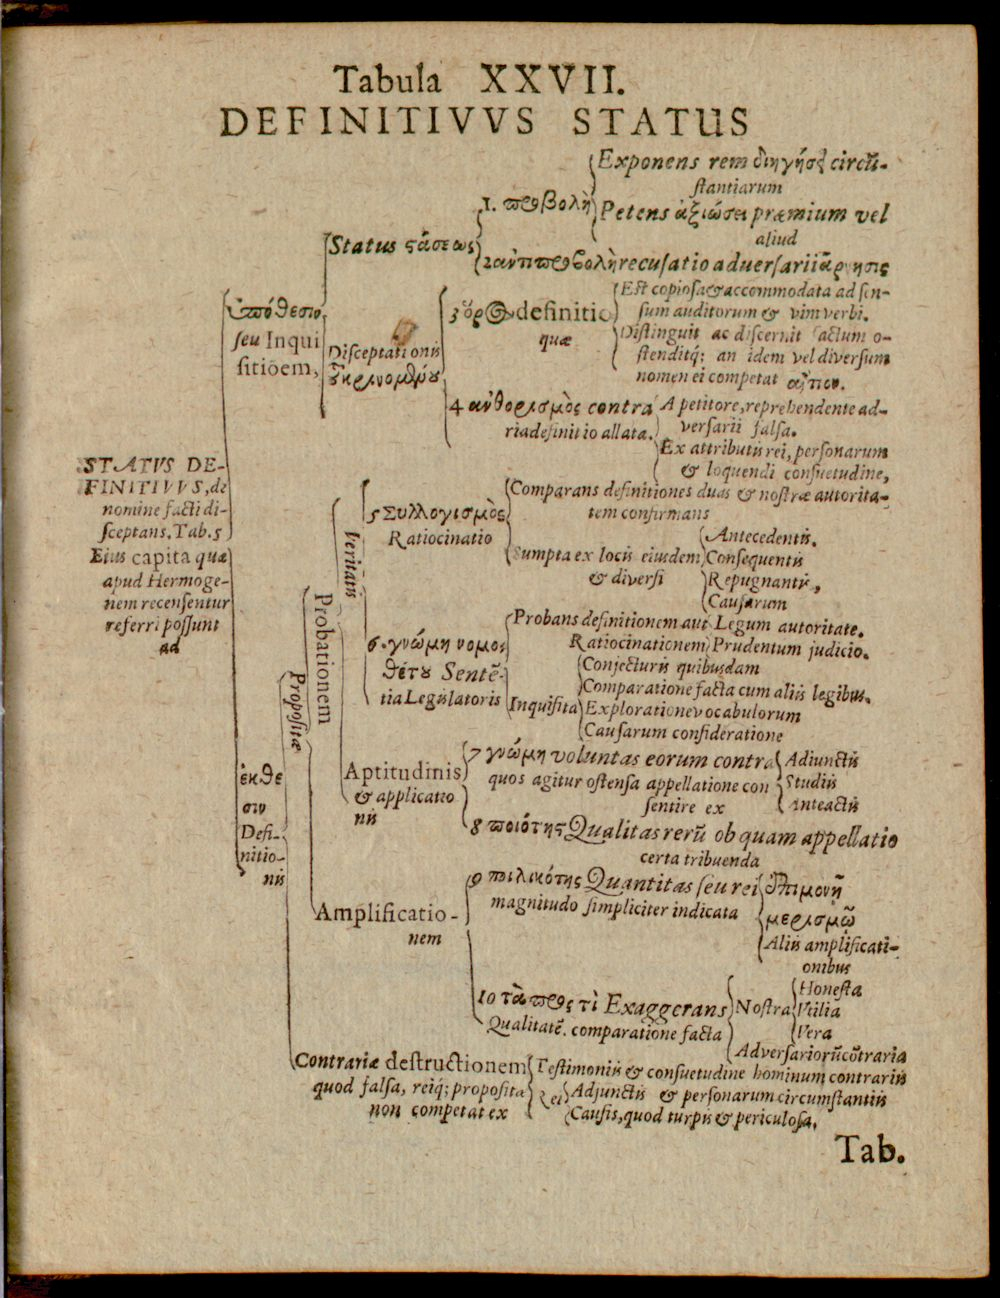 Tabula XXVII.
DEFINITIVVS STATUS
STATVS DE-
FINITIVVS, de
nomine facti di-
sceptans. Tab. 5
Eius capita quæ
apud Hermoge-
nem recensentur
referri possunt
ad
ὑπόθεσιν
seu Inqui
sitiōem,
Status ςάσεως
1. προβολὴ
Exponens rem διηγήσει circū-
stantiarum
Petens ἀξιώσει præmium vel
aliud
2 ἀντιπροβολὴ recusatio adversarii ἄρνησις
Disceptationis
κρινομένου
3 ὅρος definitio
quæ
Est copiosa & accommodata ad sen-
sum auditorum & vim verbi.
Distinguit ac discernit factum o-
stenditq; an idem vel diversum
nomen ei competat
4 ἀνθορισμὸς contra
ria definitio allata.
A petitore, reprehendente ad-
versarii falsa.
Ex attributis rei, personarum
& loquendi consuetudine,
ἐκθε
σιν
Defi-
nitio-
nis
Propositæ
Probationem
Veritatis
5 Συλλογισμὸς
Ratiocinatio
Comparans definitiones duas & nostræ autorita-
tem confirmans
Sumpta ex locis eiusdem
& diversi
Antecedentis.
Consequentis
Repugnantis,
Causarum
6. γνώμη νομο
θέτου Sentē-
tia Legislatoris
Probans definitionem aut
Ratiocinationem
Legum autoritate.
Prudentum judicio.
Inquisita
Conjecturis quibusdam
Comparatione facta cum aliis legibus.
Exploratione vocabulorum
Causarum consideratione
Aptitudinis
& applicatio
nis
7 γνώμη voluntas eorum contra
quos agitur ostensa appellatione con
sentire ex
Adiunctis
Studiis
Anteactis
8 ποιότης Qualitas rerū ob quam appellatio
certa tribuenda
Amplificatio-
nem
9 πηλικότης Quantitas seu rei
magnitudo simpliciter indicata
ἐπιμονῇ
μερισμῷ
Aliis amplificati-
onibus
10 τὰ πρός τὶ Exaggerans
Qualitatē. comparatione facta
Nostra
Honesta
Vtilia
Vera
Adversariorū cōtraria
Contrariæ destructionem
quod falsa, reiq; proposita
non competat ex
Testimoniis & consuetudine hominum contrariis
Rei
Adjunctis & personarum circumstantiis
Causis, quod turpis & periculosa.
Tab.